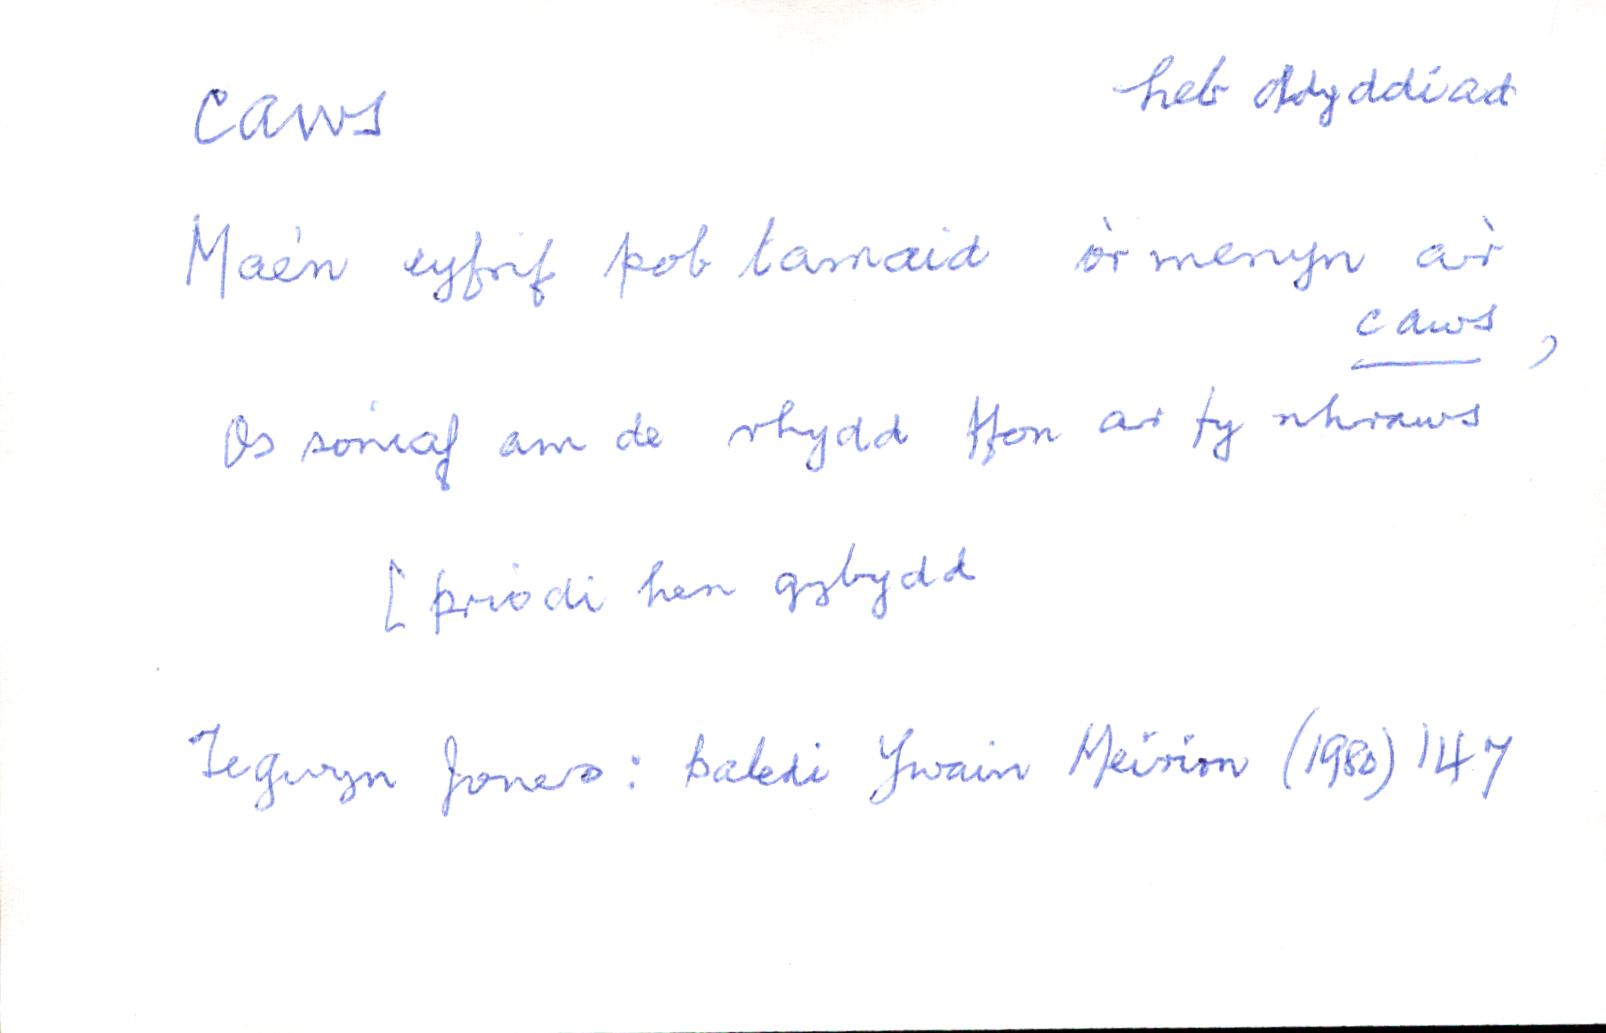 caws
heb ddyddiad
Mae'n cyfrif pob tamaid o'r menyn a'r
caws,
Os soniaf am de rhydd ffon ar fy nhraws
[priodi hen gybydd
Tegwyn Jones: Baledi Ywain Meirion (1980) 147